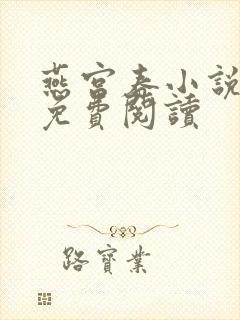 燕宫春小說
免費閱讀
路寶業